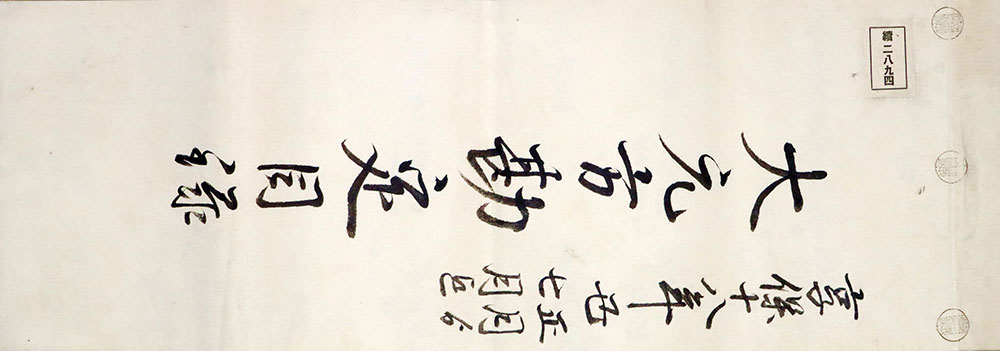 續二八九四
大元方勘定目録
享保十八年丑
正月ゟ
七月迄